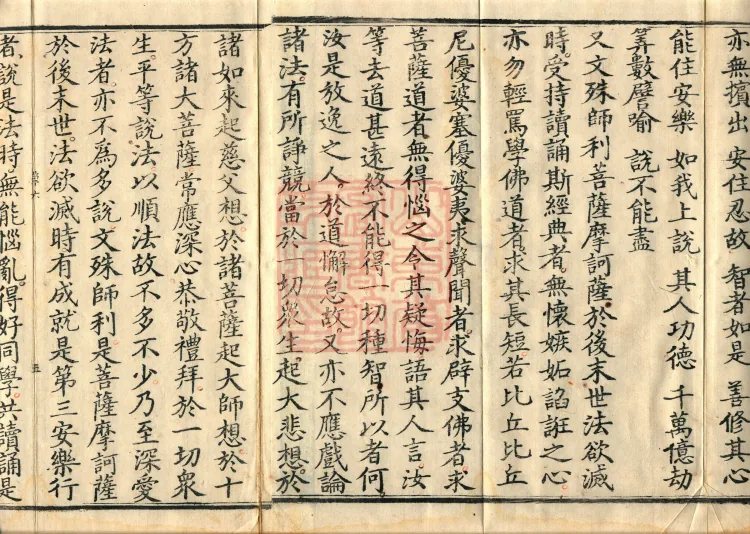 亦無擯出 安住忍故 智者如是 善修其心
能住安樂 如我上說 其人功德 千萬億劫
筭數譬喻 說不能盡
又文殊師利菩薩摩訶薩於後末世法欲滅
時受持讀誦斯經典者無懷嫉妬諂誑之心
亦勿輕罵學佛道者求其長短若比丘比丘
尼優婆塞優婆夷求聲聞者求辟支佛者求
菩薩道者無得惱之令其疑悔語其人言汝
等去道甚遠終不能得一切種智所以者何
汝是放逸之人於道懈怠故又亦不應戲論
諸法有所諍競當於一切眾生起大悲想於
諸如來起慈父想於諸菩薩起大師想於十
方諸大菩薩常應深心恭敬禮拜於一切眾
生平等說法以順法故不多不少乃至深愛
法者亦不為多說文殊師利是菩薩摩訶薩
於後末世法欲滅時有成就是第三安樂行
者說是法時無能惱亂得好同學共讀誦是